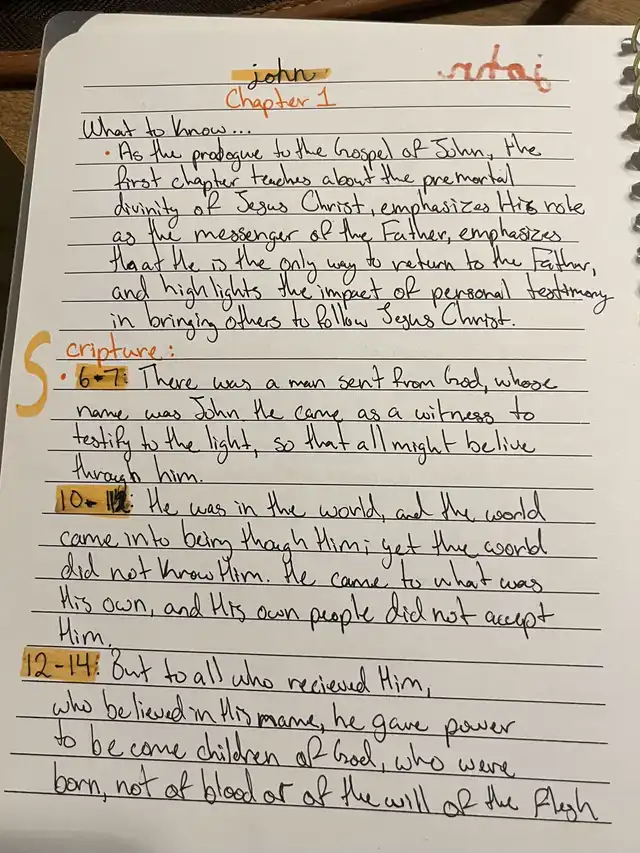 john
Chapter 1
What to Know...
• As the prodogue to the Gospel of John, the
first chapter teaches about the premortal
divinity of Jesus Christ, emphasizes His role
as the messenger of the Father, emphasizes
that He is the only way to return to the Father,
and highlights the impact of personal testimony
in bringing others to follow Jesus Christ.
Scripture:
• 6-7: There was a man sent from God, whose
name was John He came as a witness to
testify to the light, so that all might belive
through him.
10-: He was in the world, and the world
came into being though Him; yet the world
did not know Him. He came to what was
His own, and His own people did not accept
Him.
12-14: But to all who recieved Him,
who believed in His name, he gave power
to become children of God, who were
born, not of blood or of the will of the flesh